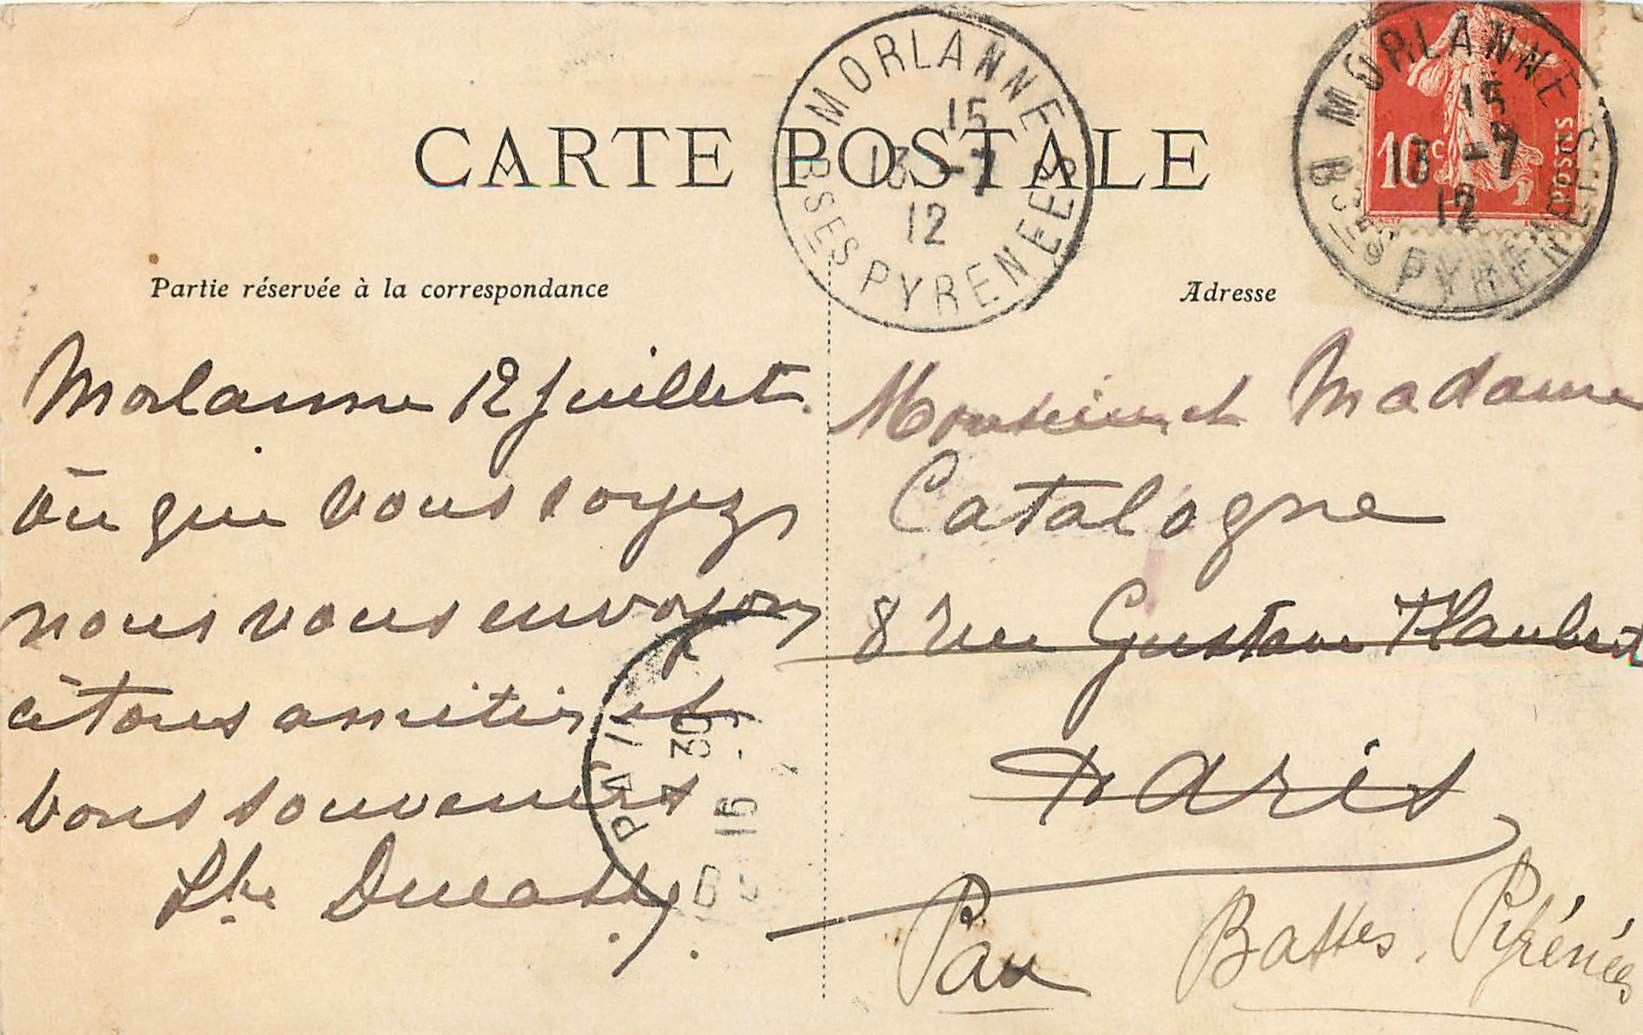 CARTE POSTALE
MORLANNE
15
13 -7
12
BSES PYRENEES
MORLANNE
15
13 -7
12
BSES PYRENEES
10c
POSTES
Partie réservée à la correspondance
Adresse
Morlanne 12 Juillet
Où que vous soyez,
nous vous envoyons
à tous amitiés et
bons souvenirs
Ducasse
Monsieur et Madame
Catalogne
8 rue Gustave Flaubert
Paris
Pau Basses Pyrénées
PARIS
30
15